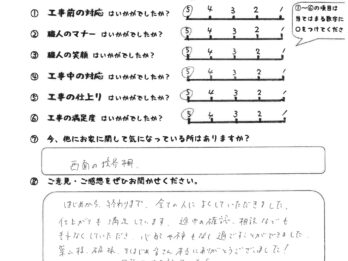 ① 工事前の対応 はいかがでしたか? ⑤ 4 3 2 1
② 職人のマナー はいかがでしたか? ⑤ 4 3 2 1
③ 職人の笑顔 はいかがでしたか? ⑤ 4 3 2 1
④ 工事中の対応 はいかがでしたか? ⑤ 4 3 2 1
⑤ 工事の仕上り はいかがでしたか? ⑤ 4 3 2 1
⑥ 工事の満足度 はいかがでしたか? ⑤ 4 3 2 1
①~⑥の項目は
当てはまる数字に
○をつけてくださ
⑦ 今、他にお家に関して気になっている所はありますか?
西面の
⑧ ご意見・ご感想をぜひお聞かせください。
はじめから、終わりまで、全ての人によくしていただきました。
仕上がりも満足しています。途中の確認、相談なども
きちんとしていただき、心配や不安もなく過ごすことができました。
皆さん本当にありがとうございました!